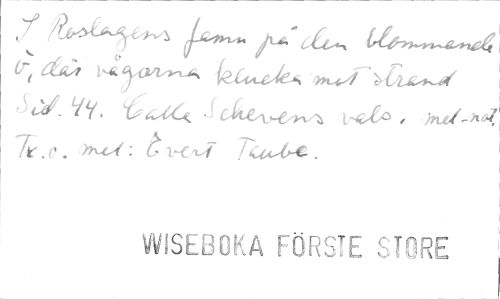 I Roslagens famn på den blommande
ö, där vågorna klucka mot strand
Sid. 44. Calle Schevens vals. mel-not.
Tx. o. mel: Evert Taube.
WISEBOKA FÖRSTE STORE